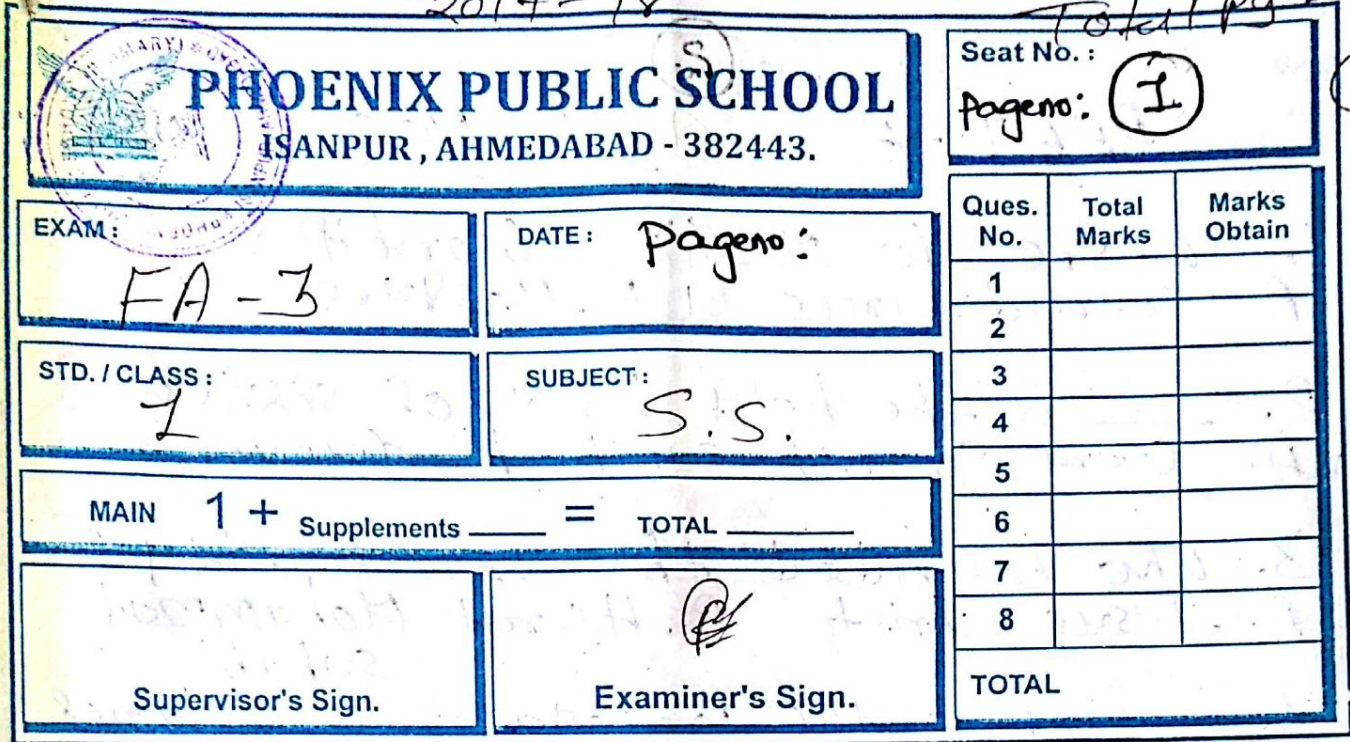 2017-18
Total pg
PHOENIX PUBLIC SCHOOL
ISANPUR, AHMEDABAD - 382443.
Seat No. :
Pageno: 1
EXAM :
FA-3
DATE : Pageno:
STD. / CLASS :
1
SUBJECT :
S.S.
MAIN 1 + Supplements ____ = TOTAL ____
Supervisor's Sign.
Examiner's Sign.
Ques. No. Total Marks Marks Obtain
1
2
3
4
5
6
7
8
TOTAL